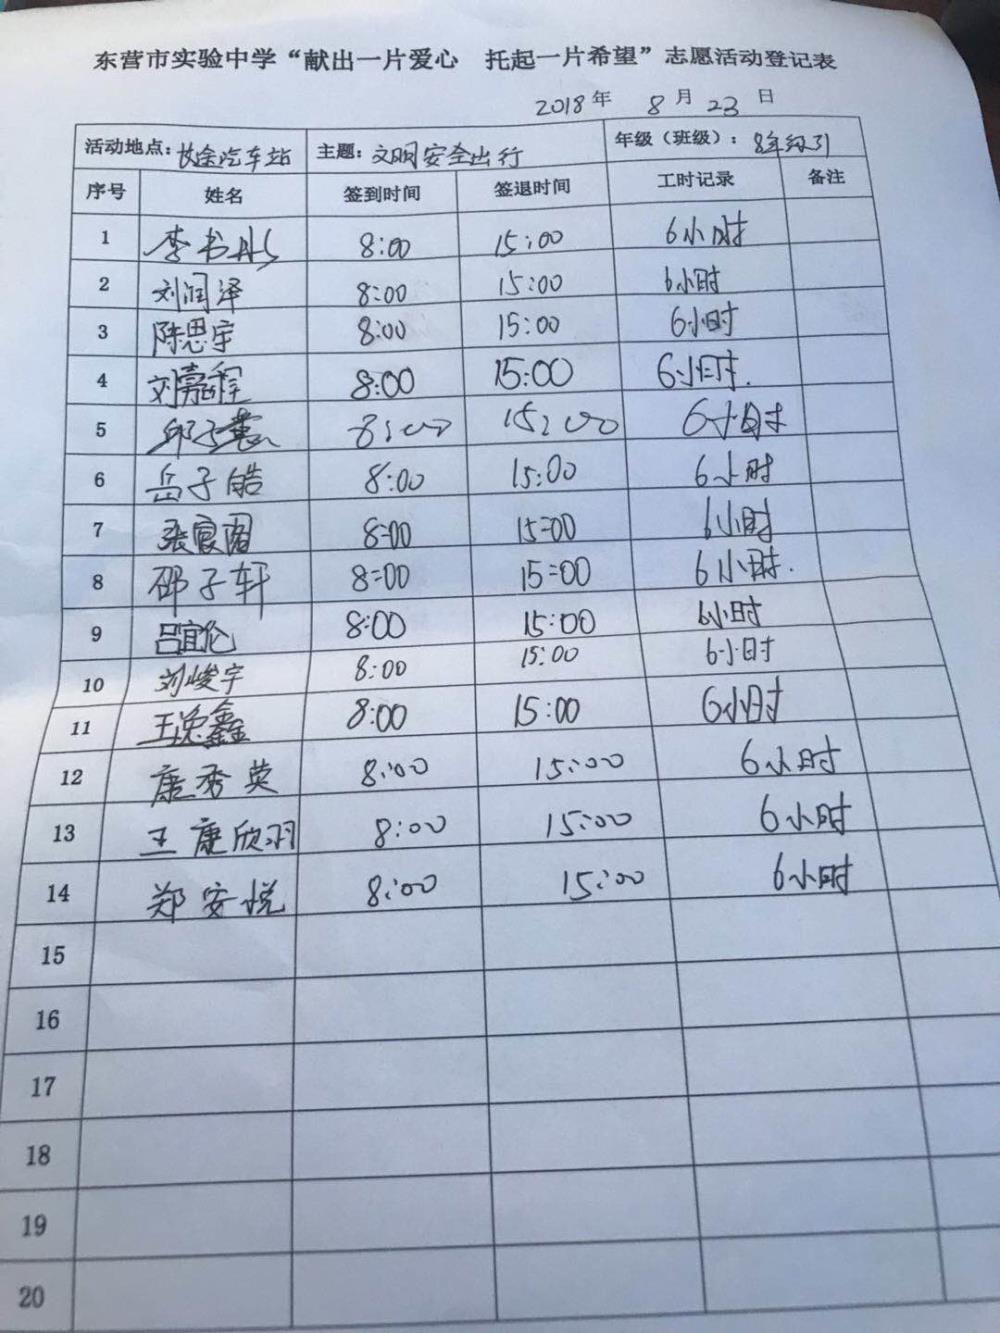 东营市实验中学“献出一片爱心 托起一片希望”志愿活动登记表
2018年 8月23日
活动地点：长途汽车站 主题：文明安全出行 年级（班级）：8年级31
序号 姓名 签到时间 签退时间 工时记录 备注
1 李书彤 8:00 15:00 6小时
2 刘润泽 8:00 15:00 6小时
3 陈思宇 8:00 15:00 6小时
4 刘嘉程 8:00 15:00 6小时.
5 邱子慧 8:00 15:00 6小时
6 岳子皓 8:00 15:00 6小时
7 张宸阁 8:00 15:00 6小时
8 邵子轩 8:00 15:00 6小时.
9 吕宜伦 8:00 15:00 6小时
10 刘峻宇 8:00 15:00 6小时
11 王逸鑫 8:00 15:00 6小时
12 唐秀英 8:00 15:00 6小时
13 王康欣羽 8:00 15:00 6小时
14 郑安悦 8:00 15:00 6小时
15
16
17
18
19
20